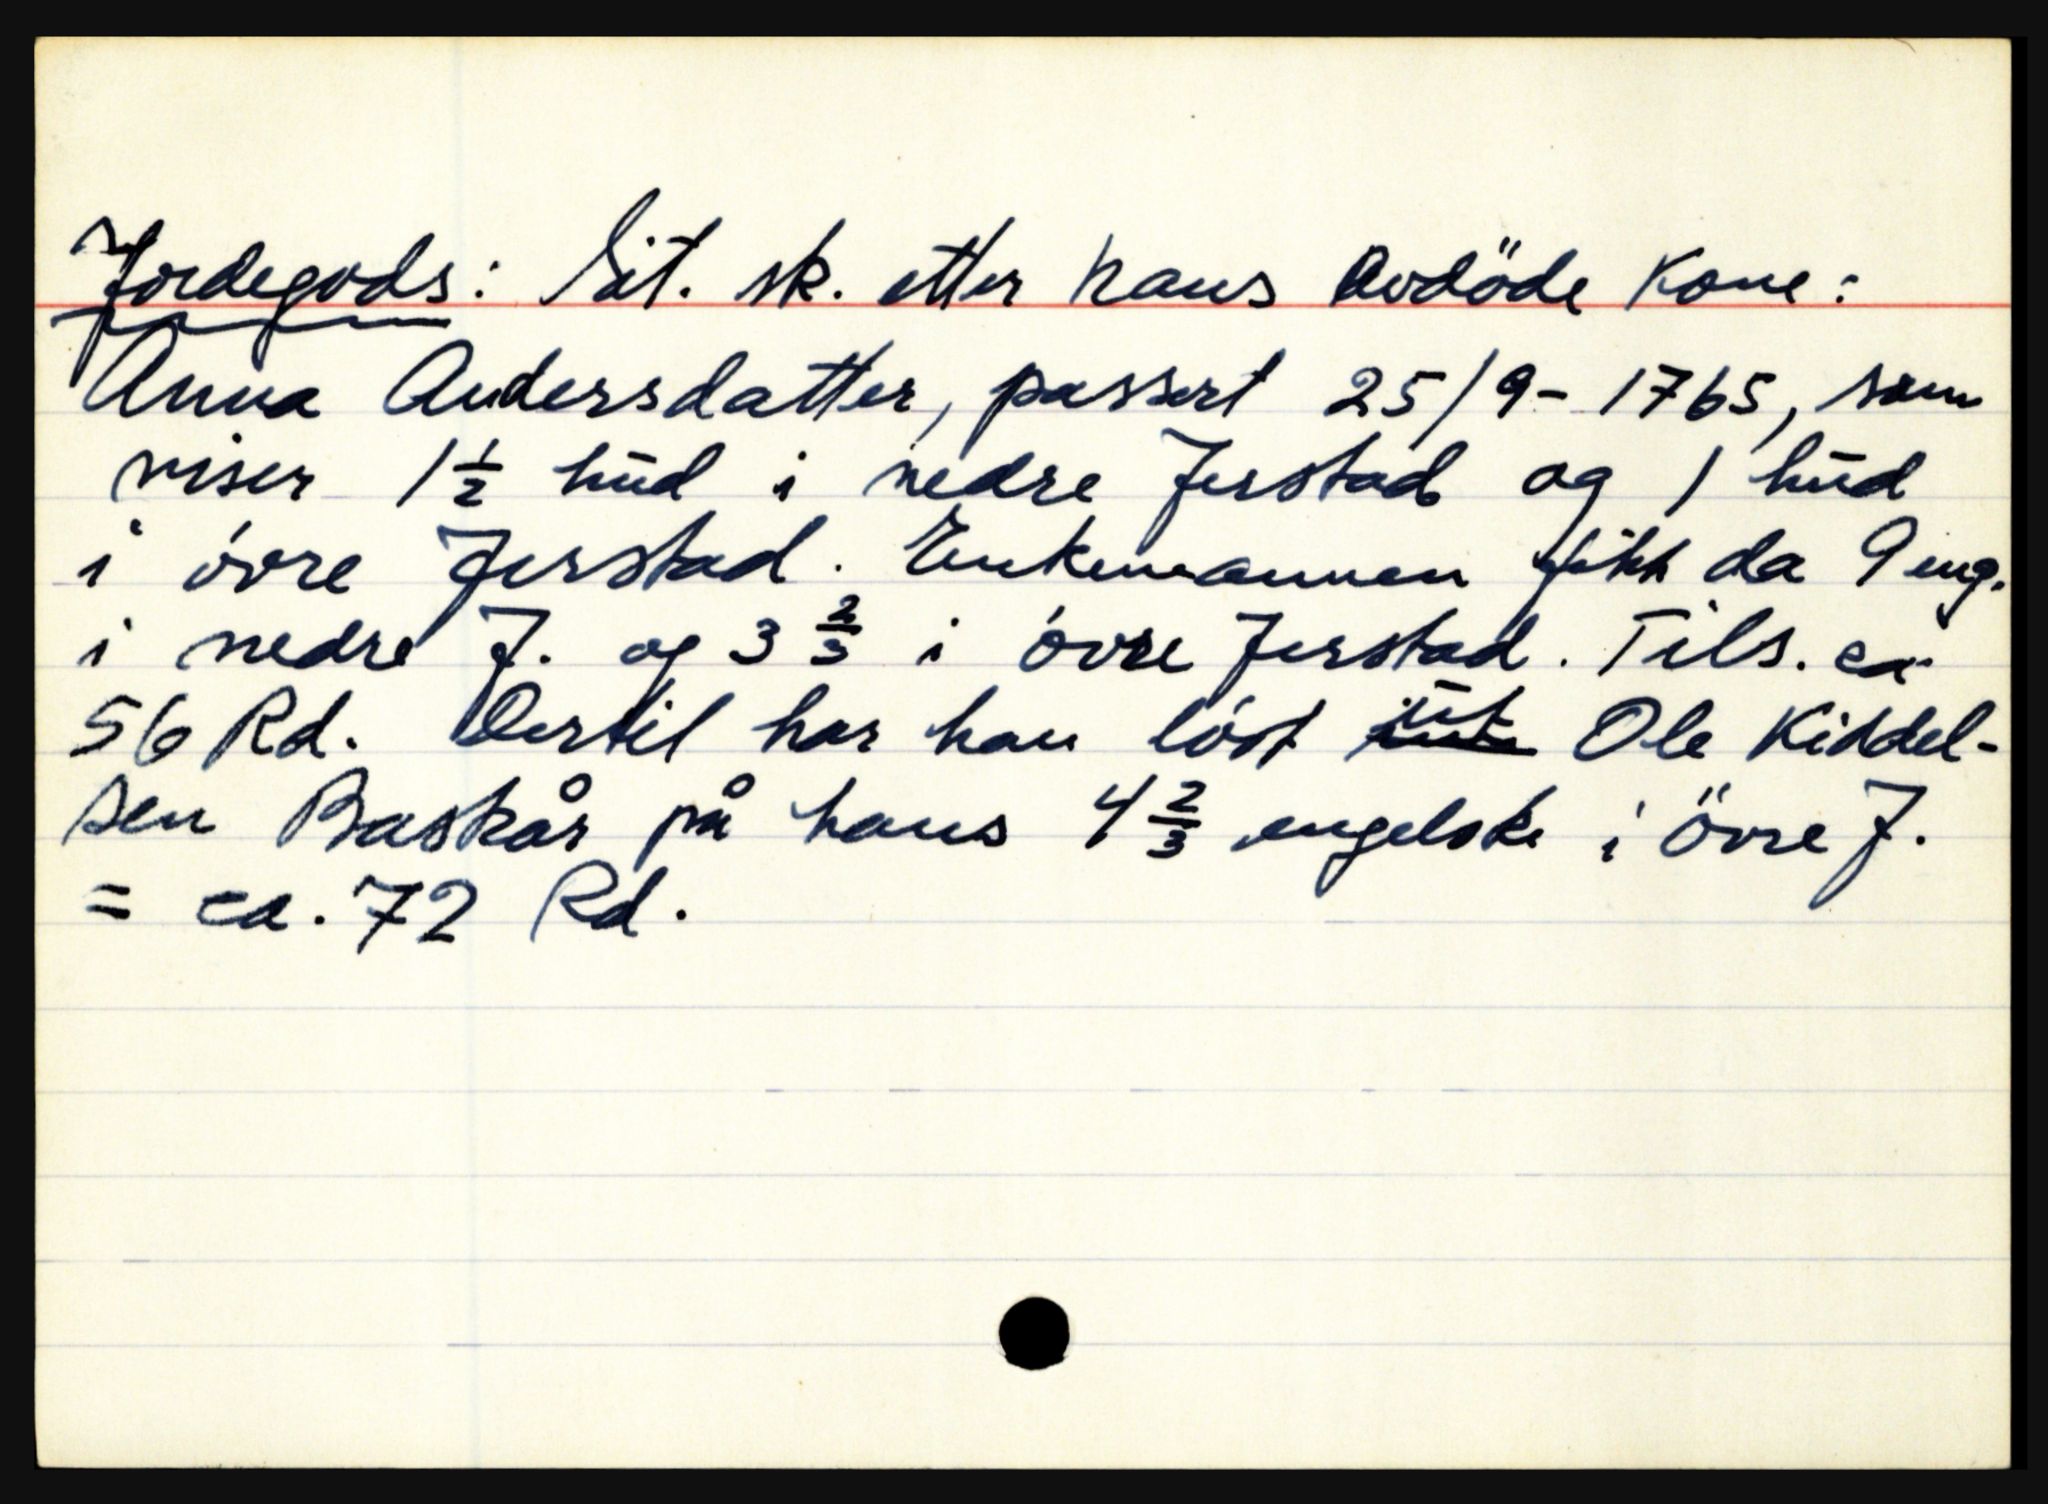 Jordegods: Sit. sk. etter hans avdöde kone:
Anna Andersdatter, passert 25/9-1765, som
viser 1 1/2 hud i nedre Jerstad og 1 hud
i övre Jerstad. Enkemannen fikk da 9 eng.
i nedre J. og 3 2/3 i övre Jerstad. Tils. ca
56 Rd. Dertil har han löst ut Ole Kiddel-
sen Baskår på hans 4 2/3 engelske i Övre J.
= ca. 72 Rd.